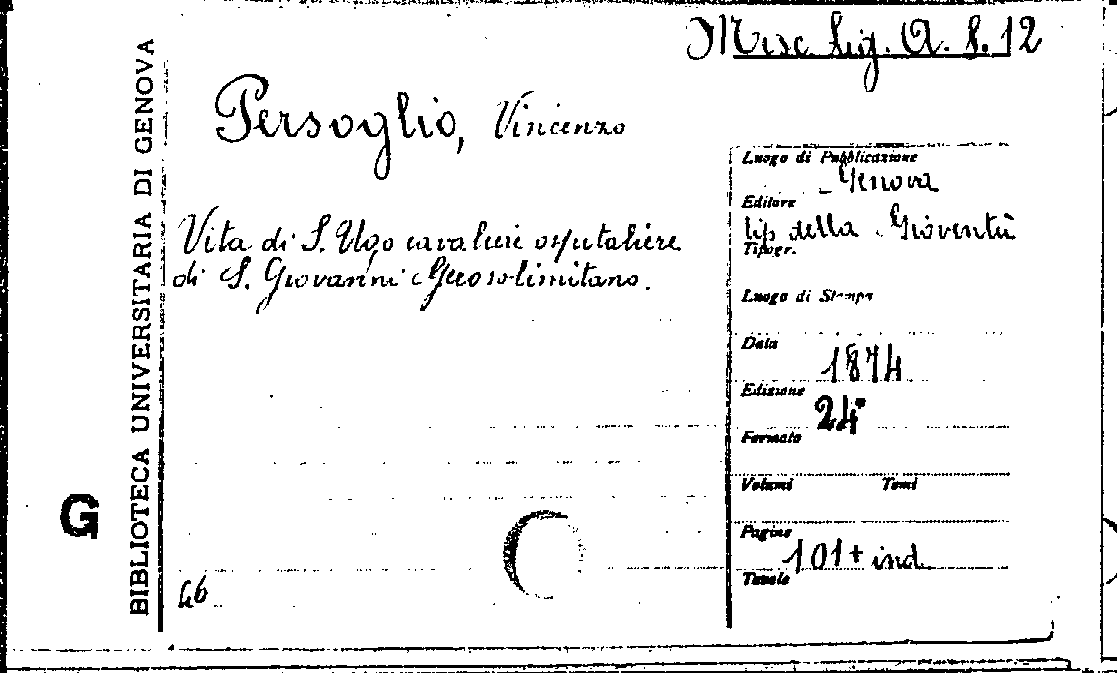 Misc. Lig. A. 8. 12
Persoglio, Vincenzo
Vita di S. Ugo cavaliere ospitaliere
di S. Giovanni Gerosolimitano.
46
G
BIBLIOTECA UNIVERSITARIA DI GENOVA
Luogo di Pubblicazione
Genova
Editore
tip. della Gioventù
Tipogr.
Luogo di Stampa
Data
1874
Edizione
24°
Formato
Volumi Tomi
Pagine
101 + ind.
Tavole